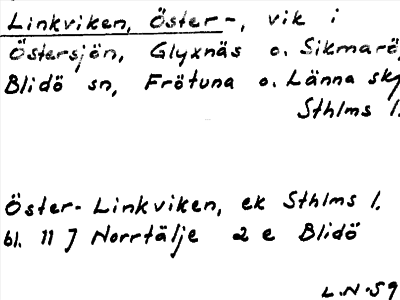 Linkviken, Öster-, vik i
Östersjön, Glyxnäs o. Sikmarö,
Blidö sn, Frötuna o. Länna skg
Sthlms l.
Öster-Linkviken, ek Sthlms l.
bl. 11 J Norrtälje 2 e Blidö
L.N-59